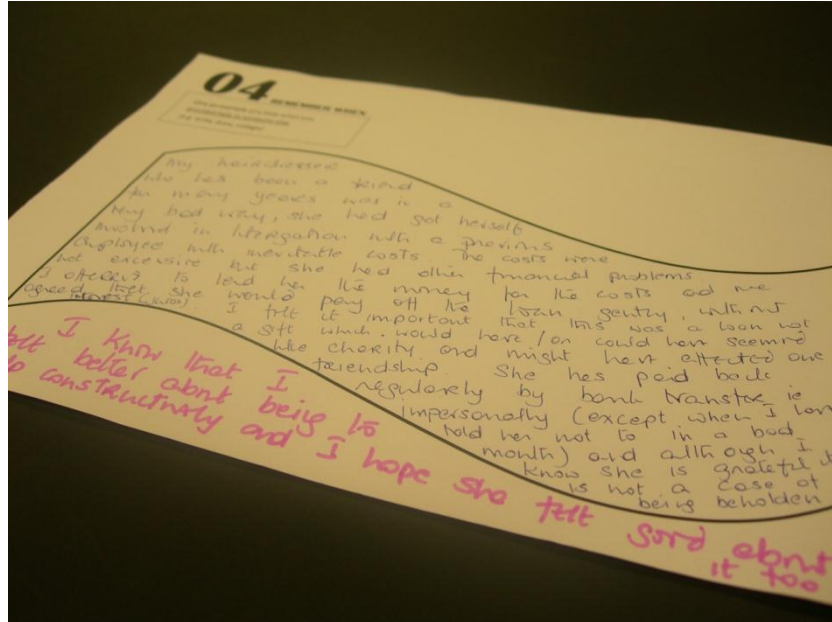 04 REMEMBER WHEN
My hairdresser
who has been a friend
for many years was in a
very bad way, she had got herself
involved in litergation with a previous
employee with inevitable costs. The costs were
not excessive but she had other financial problems
I offered to lend her the money for the costs and we
agreed that she would pay off the loan gently, without
interest (). I felt it important that this was a loan not
a gift which would have / or could have seemed
like charity and might have effected one
friendship. She has paid back
regularely by bank transfer ie
impersonally (except when I have
told her not to in a bad
month) and although I
know she is grateful it
is not a case of
being beholden
I know that I
felt better about being to
do constructively and I hope she felt good about
it too